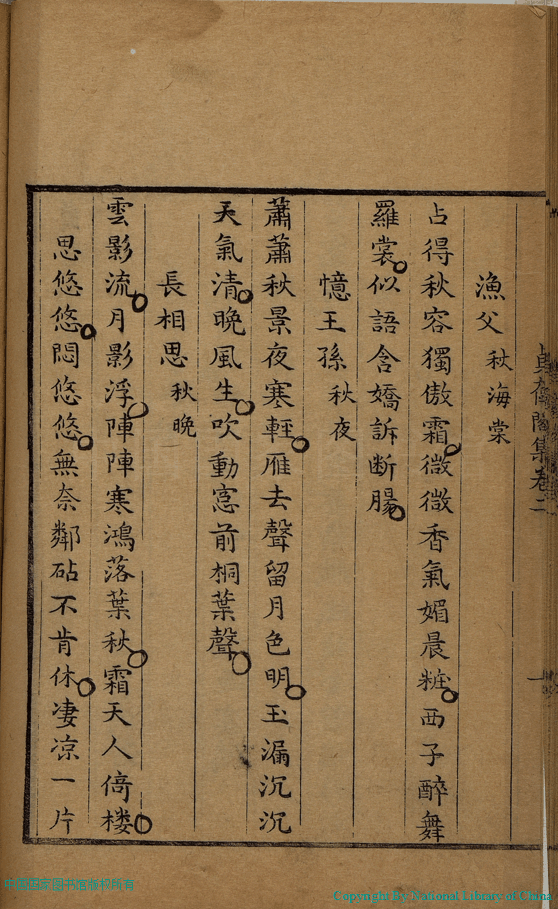 漁父 秋海棠
占得秋容獨傲霜微微香氣媚晨粧西子醉舞
羅裳似語含嬌訴断腸
憶王孫 秋夜
蕭蕭秋景夜寒輕雁去聲留月色明玉漏沉沉
天氣清晚風生吹動窻前桐葉聲
長相思 秋晚
雲影流月影浮陣陣寒鴻落葉秋霜天人倚楼
思悠悠悶悠悠無奈鄰砧不肯休凄凉一片
集卷二
一
Copyright By National Library of China